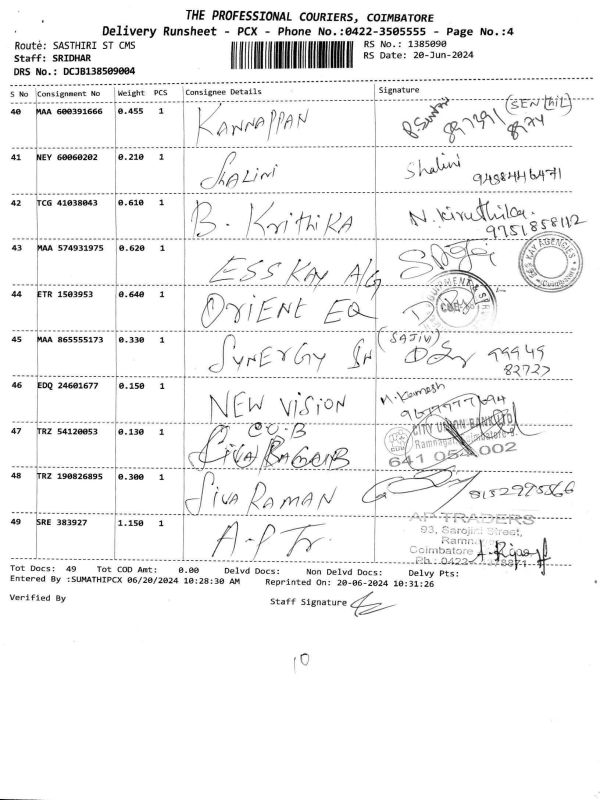 THE PROFESSIONAL COURIERS, COIMBATORE
Delivery Runsheet - PCX - Phone No.:0422-3505555 - Page No.:4
Route: SASTHIRI ST CMS
RS No.: 1385090
Staff: SRIDHAR
RS Date: 20-Jun-2024
DRS No.: DCJB138509004
S No Consignment No Weight PCS Consignee Details Signature
40 MAA 600391666 0.455 1 KANNAPPAN
41 NEY 60060202 0.210 1 SHALINI Shalini
42 TCG 41038043 0.610 1 B. KrithiKA N. Kiruthika.
9751858112
43 MAA 574931975 0.620 1 ESS KAY A/G
44 ETR 1503953 0.640 1 ORIENT EQ
45 MAA 865555173 0.330 1 SYNERGY SH (SAJIV) 99949
82727
46 EDQ 24601677 0.150 1 NEW VISION
47 TRZ 54120053 0.130 1 CUB
CITY UNION BANK LTD
Ramnagar, Coimbatore-9.
641 054 002
48 TRZ 190826895 0.300 1 SIVA RAMAN
49 SRE 383927 1.150 1 A-P Tr.
AP TRADERS
93, Sarojini Street,
Ramn
Coimbatore
Ph: 0422
Tot Docs: 49 Tot COD Amt: 0.00 Delvd Docs: Non Delvd Docs: Delvy Pts:
Entered By :SUMATHIPCX 06/20/2024 10:28:30 AM Reprinted On: 20-06-2024 10:31:26
Verified By Staff Signature
10